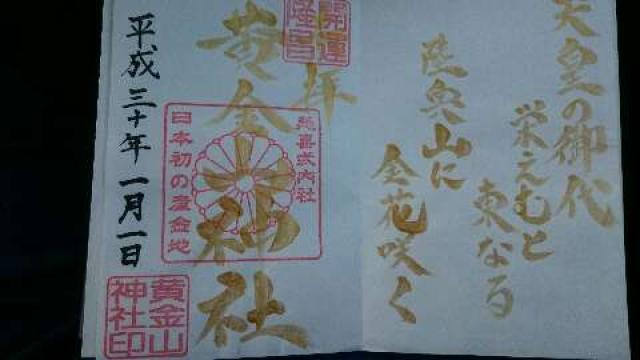 天皇の御代
栄えむと
東なる
陸奥山に
金花咲く
開運
隆昌
拝
黄金山神社
延喜式内社
日本初の産金地
黄金山
神社印
平成三十年一月一日